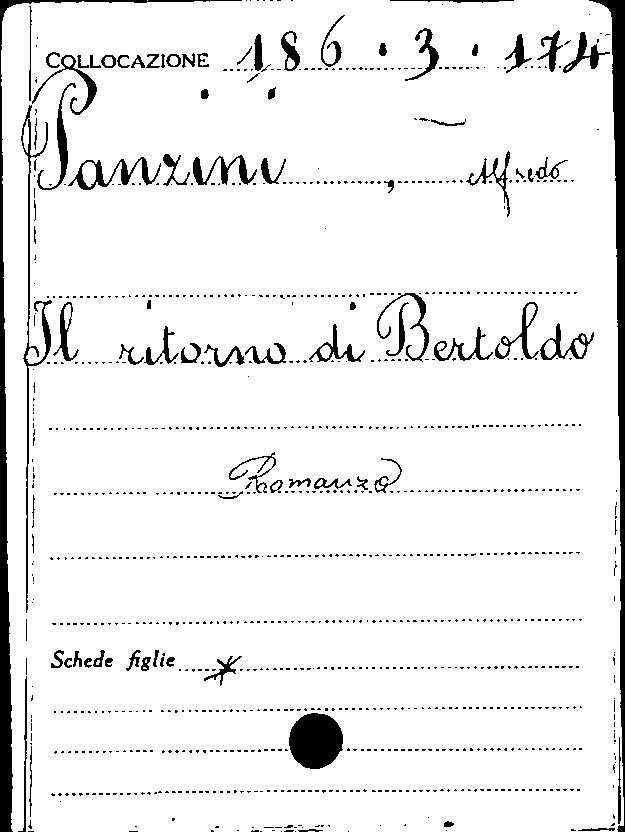 COLLOCAZIONE 186.3.174
Panzini, Alfredo
Il ritorno di Bertoldo
Romanzo
Schede figlie